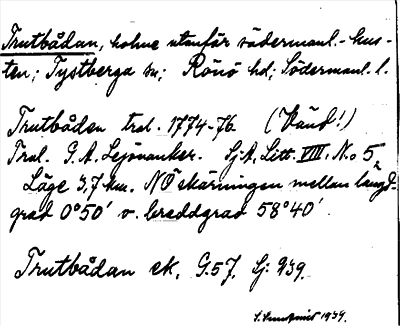 Trutbådan, holme utanför södermanl.-kus-
ten; Tystberga sn; Rönö hd; Södermanl. l.
Trutbåden tral. 1774-76 (Vänd!)
Tral. G. A. Lejonanker. Sj.A. Litt. VIII. No 5
Läge 3,7 km. NÖ skärningen mellan längd-
grad 0°50' v. breddgrad 58°40'.
Trutbådan ek. G.57. Sj: 939.
1939.